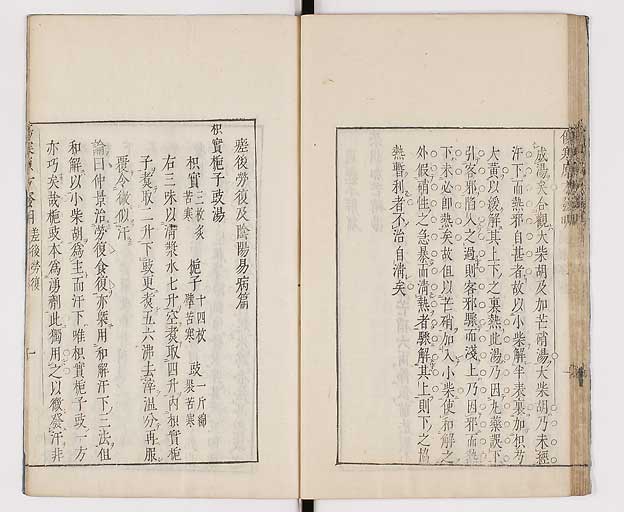 成湯矣合觀大柴胡及加芒硝湯大柴胡乃未經
汗下而熱邪自甚者故以小柴解半表裏加枳芍
大黃以緩解其上下之裏熱此湯乃因丸藥誤下
引客邪陷入之過則客邪驟而淺上乃因邪而熱
下未必即熱矣故但以芒硝加入小柴使和解之
外假硝性之急暴而清熱者驟解其上則下之協
熱暫利者不治自清矣
差後勞復及陰陽易病篇
枳實梔子豉湯
枳實 三枚炙 苦寒 梔子 十四枚 擘苦寒 豉 一斤綿 裹苦寒
右三味以清漿水七升空煑取四升內枳實梔
子煑取二升下豉更煑五六沸去滓溫分再服
覆令微似汗
論曰仲景治勞復食復亦槩用和解汗下三法但
和解以小柴胡為主而汗下唯枳實梔子豉一方
亦巧矣哉梔豉本為湧劑此獨用之以微發汗非
差後勞復
一